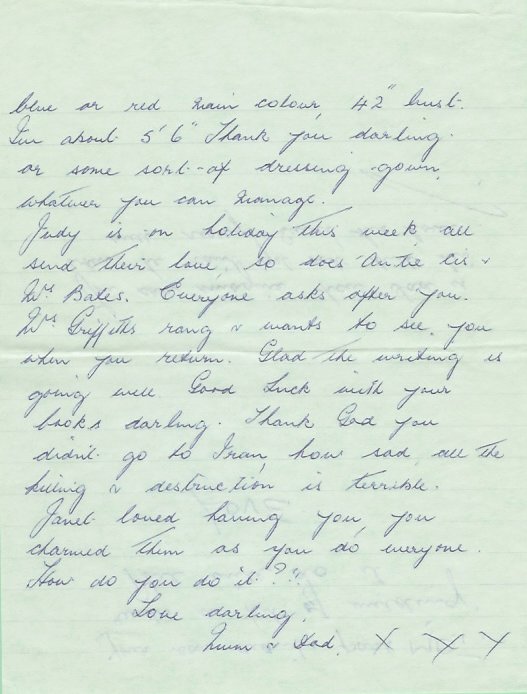 blue or red main colour, 42" bust.
I'm about 5'6" Thank you darling.
or some sort-of dressing gown,
whatever you can manage.
Judy is on holiday this week, all
send their love, so does Antie Lis &
Mrs Bates. Everyone asks after you.
Mrs Griffiths rang & wants to see you
when you return. Glad the writing is
going well. Good Luck with your
books darling. Thank God you
didn't go to Iran, how sad, all the
killing & destruction is terrible.
Janet loved having you, you
charmed them as you do everyone.
How do you do it???
Love darling,
Mum & Dad. X X X